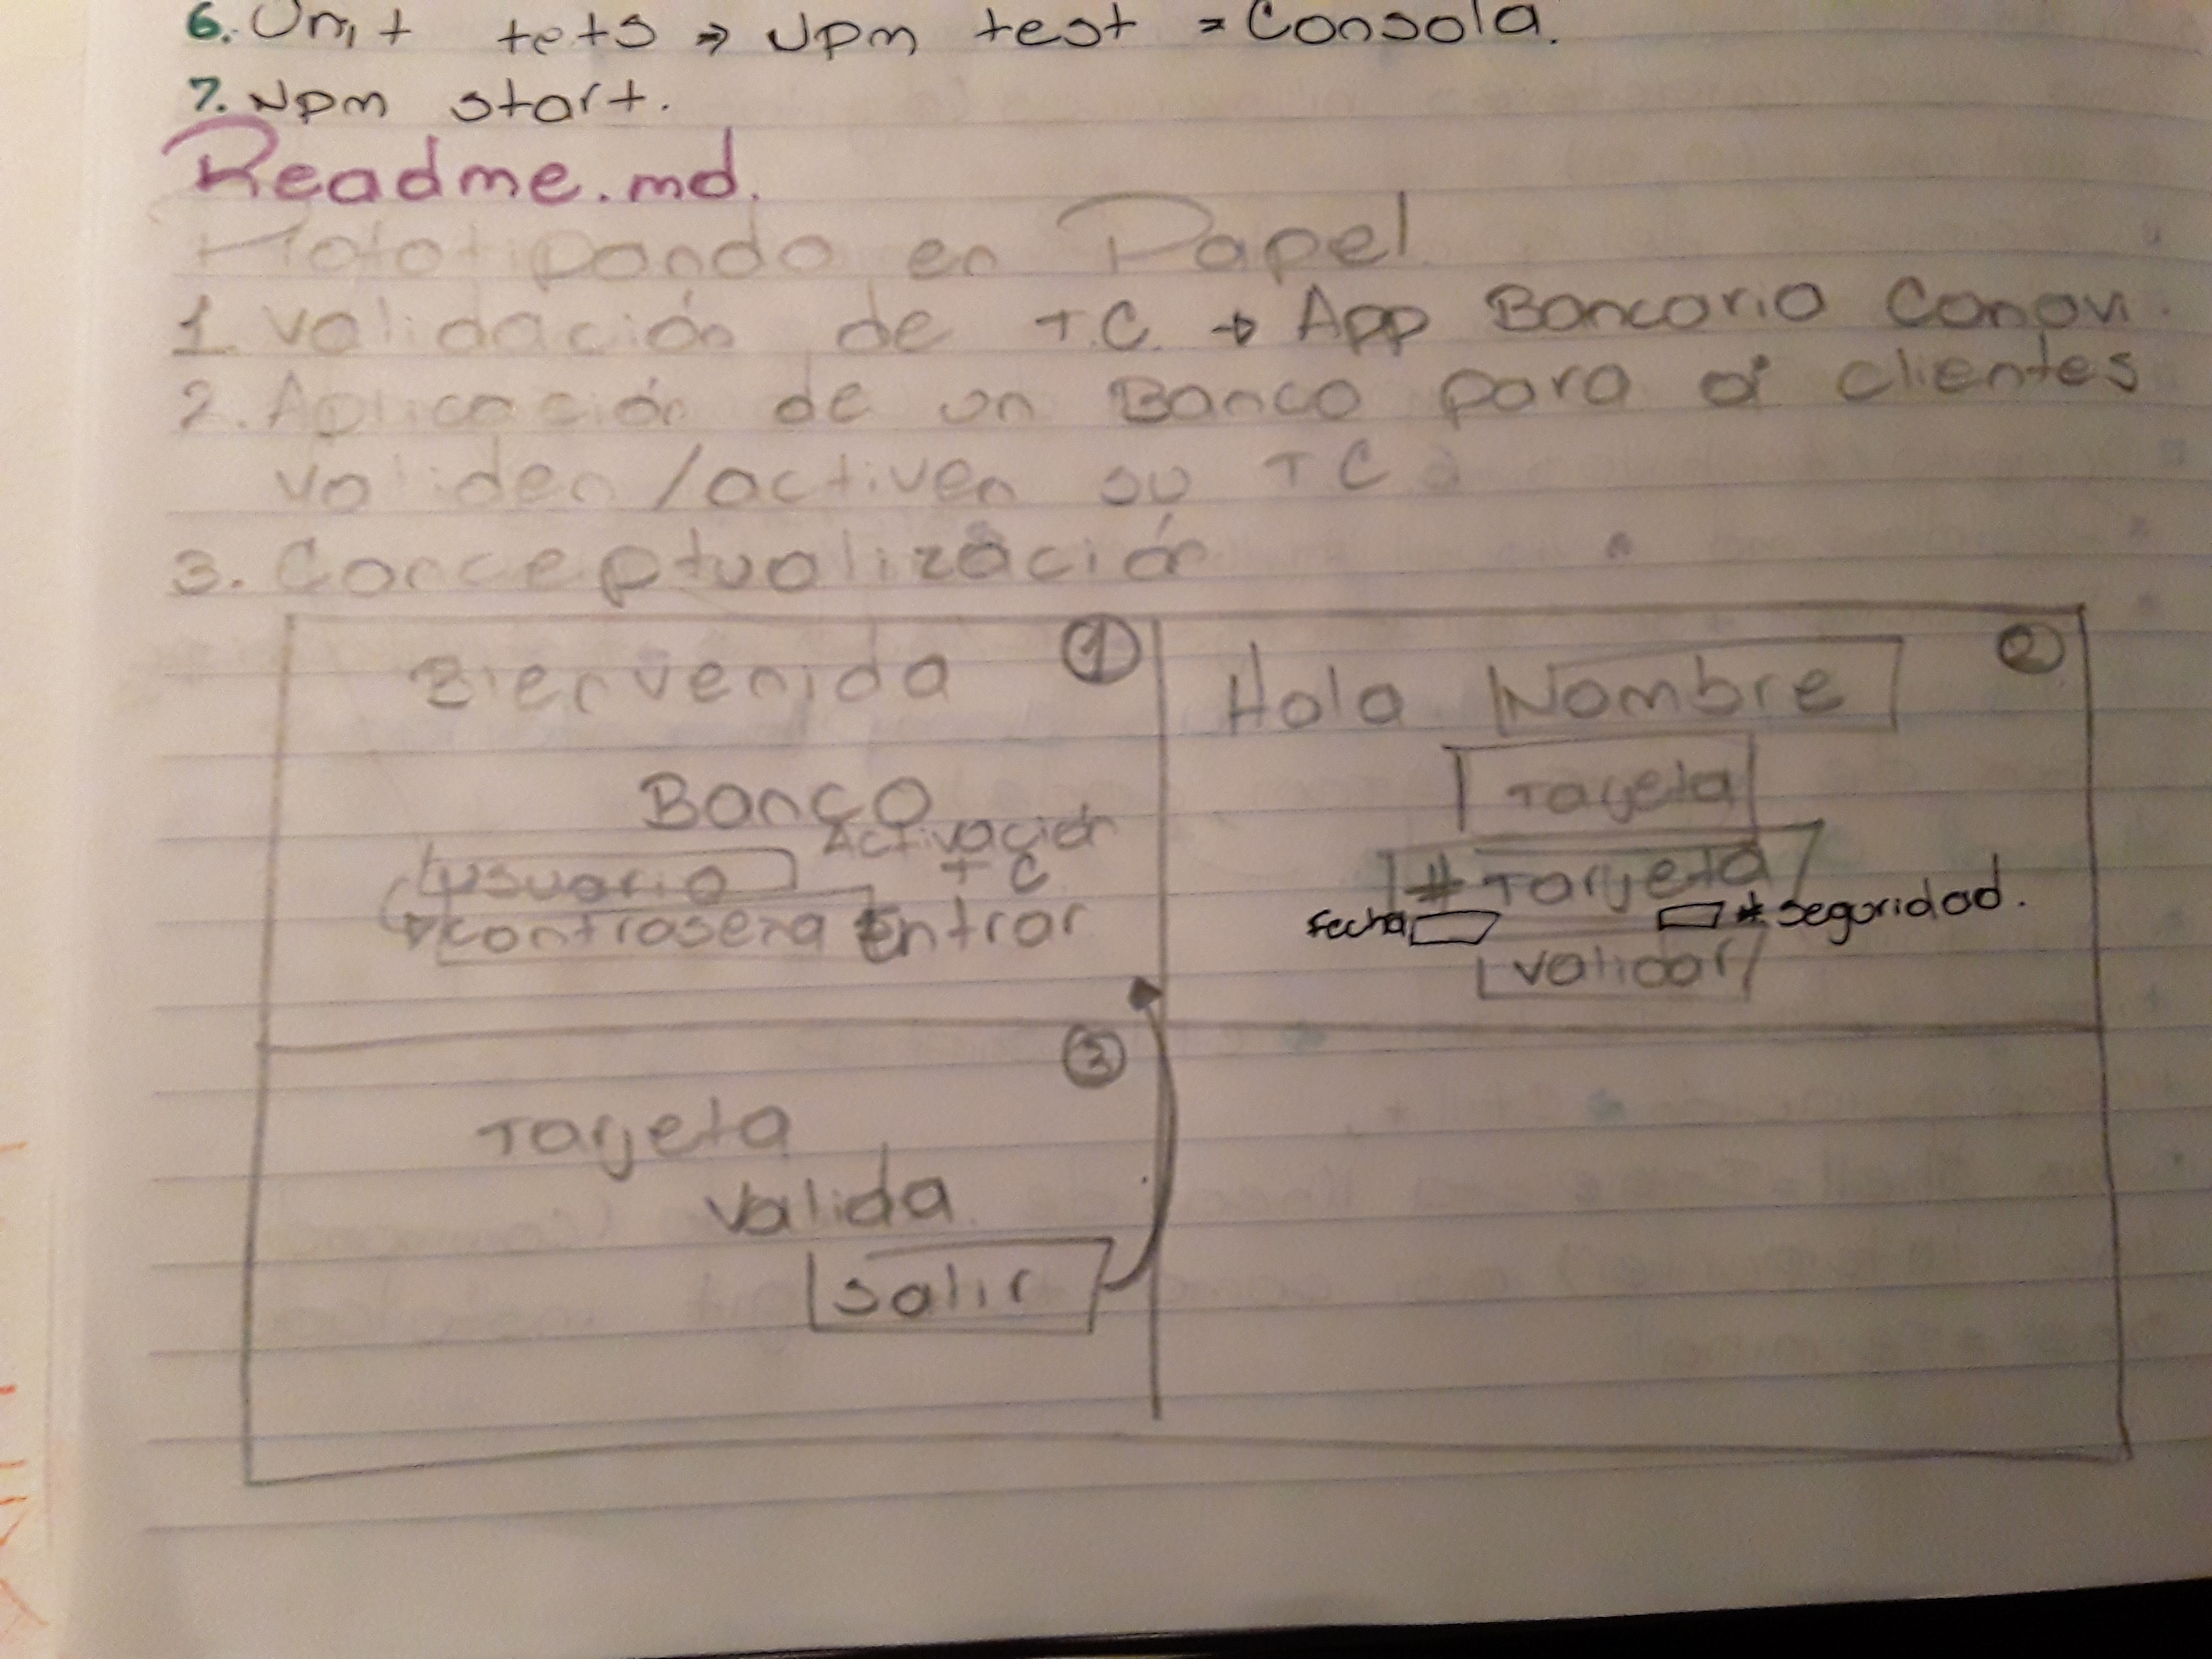 6. Unit tets ⇒ Npm test = Consola.
7. Npm start.
Readme.md.
Prototipando en Papel
1. Validación de T.C. → App Bancario
2. Aplicación de un Banco para a clientes
validen/activen su TC
3. Conceptualización
Bienvenida ①
Banco
Activación
TC
usuario
contraseña Entrar
Hola Nombre ②
Tarjeta
# Tarjeta
fecha # seguridad.
validar
③
Tarjeta
Valida
Salir